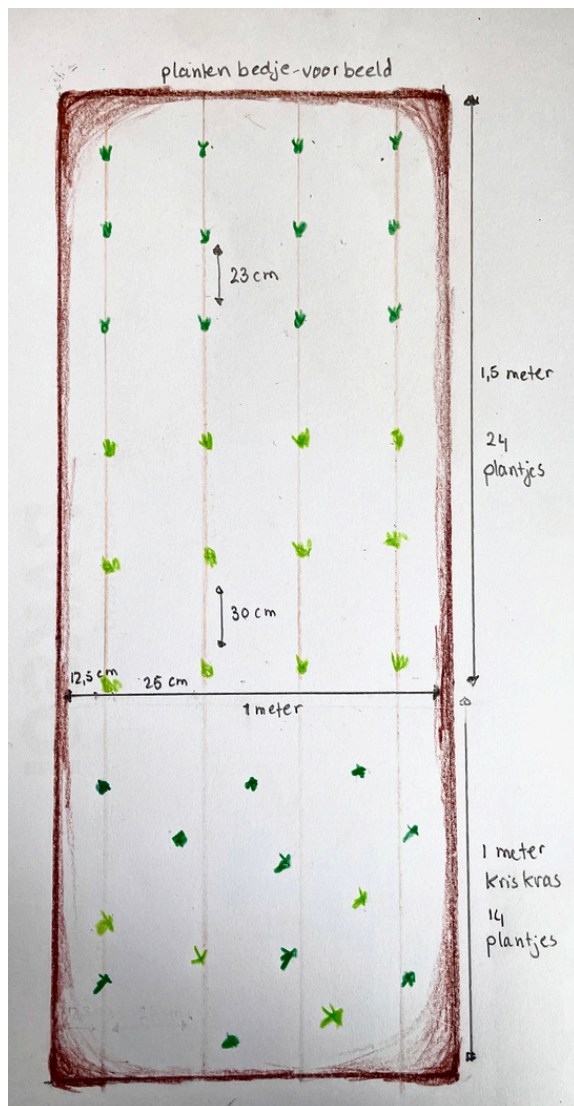 planten bedje-voorbeeld
23 cm
1,5 meter
24
plantjes
30 cm
12,5 cm
25 cm
1 meter
1 meter
kriskras
14
plantjes